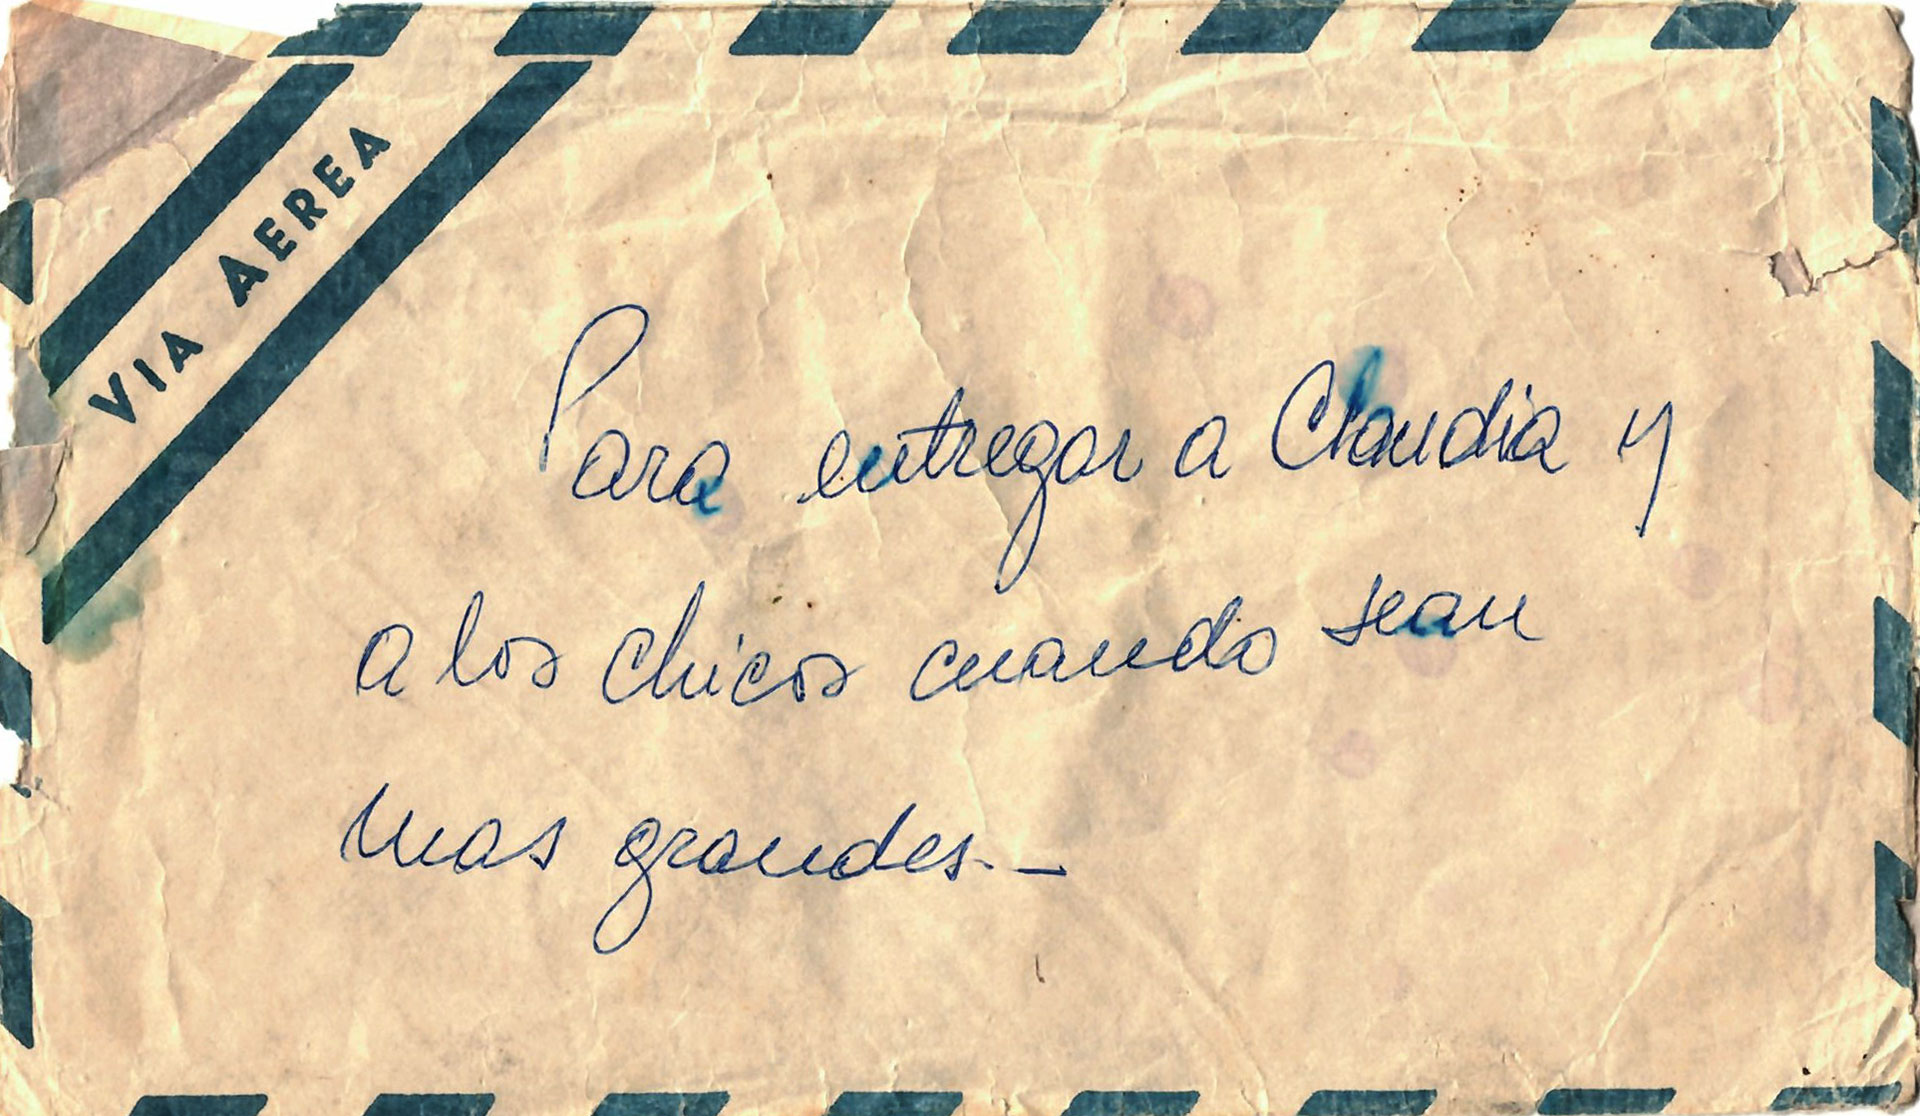 VIA AEREA
Para entregar a Claudia y
a los chicos cuando sean
mas grandes.-